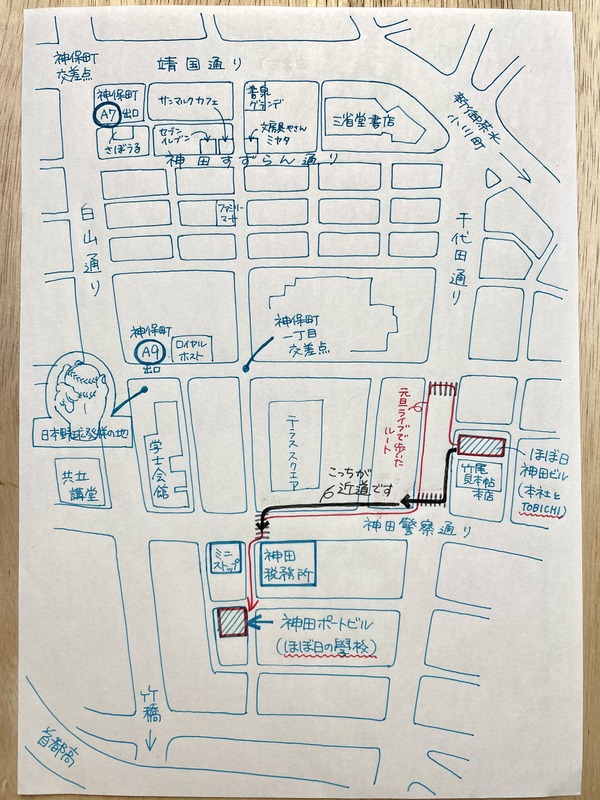 神保町
交差点
靖国通り
神保町
A7 出口
サンマルクカフェ
書泉
グランデ
三省堂書店
新御茶ノ水
小川町
さぼうる
セブン
イレブン
文房具やさん
ミヤタ
神田すずらん通り
白山通り
ファミリー
マート
千代田通り
神保町
A9
出口
ロイヤル
ホスト
神保町
一丁目
交差点
日本野球発祥の地
共立
講堂
学士会館
テラススクエア
元旦ライブで歩いた
ルート
こっちが
近道です
竹尾
見本帖
本店
ほぼ日
神田ビル
(本社と
TOBICHI)
神田警察通り
ミニ
ストップ
神田
税務所
神田ポートビル
(ほぼ日の學校)
竹橋
首都高